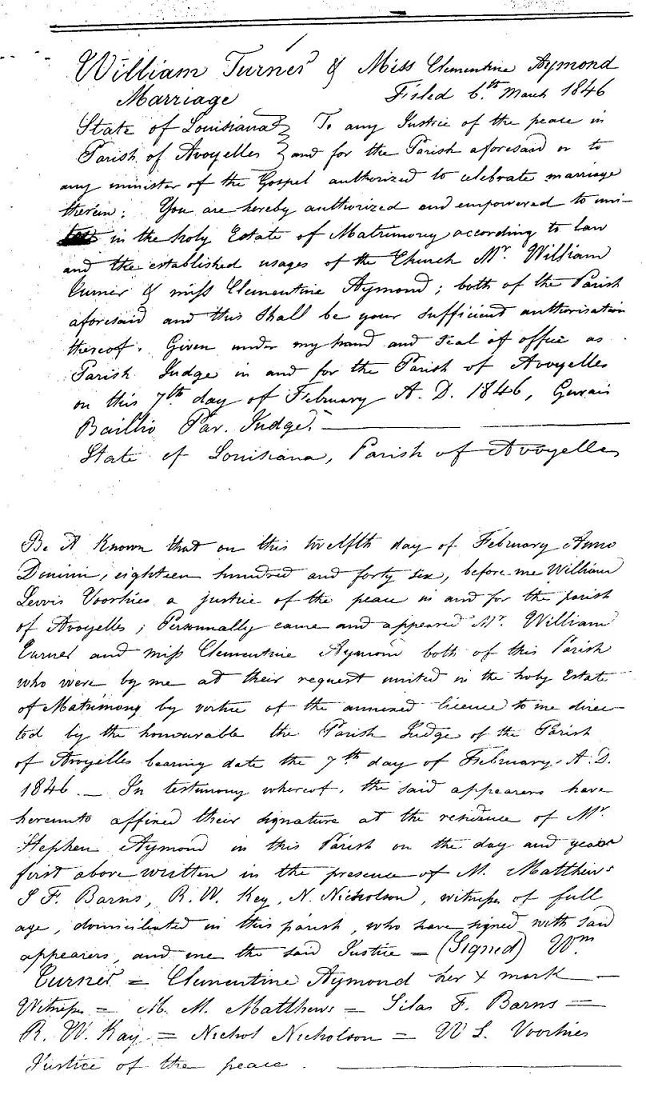 William Turner & Miss Clementine Aymond
Marriage Filed 6.th March 1846
State of Louisiana } To any Justice of the peace in
Parish of Avoyelles } and for the Parish aforesaid or to
any minister of the Gospel authorized to celebrate marriage
therein: You are hereby authorized and empowered to uni-
in the holy Estate of Matrimony according to law
and the established usages of the Church Mr. William
Turner & miss Clementine Aymond; both of the Parish
aforesaid and this shall be your sufficient authorisation
thereof. Given under my hand and seal of office as
Parish Judge in and for the Parish of Avoyelles
on this 7th day of February A. D. 1846, Gervais
Baillio Par. Judge.
State of Louisiana, Parish of Avoyelles
Be it Known that on this twelfth day of February Anno
Domini, eighteen hundred and forty six, before me William
Lewis Voorhies a justice of the peace in and for the parish
of Avoyelles; Personnally came and appeared Mr. William
Turner and miss Clementine Aymond both of this Parish
who were by me at their request united in the holy Estate
of Matrimony by vertue of the annexed licence to me direc-
ted by the honourable the Parish Judge of the Parish
of Avoyelles bearing date the 7th day of February A. D.
1846. _ In testimony whereof, the said appearers have
hereunto affixed their signature at the residence of Mr.
Stephen Aymond in this Parish on the day and year
first above written in the presence of M. Matthews
S F. Barns, R. W. Key, N. Nicholson, witnesses of full
age, domiciliated in this parish, who have signed with said
appearers, and me the said Justice = (Signed) Wm
Turner = Clementine Aymond her x mark _
Witnesses = M. M. Matthews = Silas F. Barns =
R. W. Kay = Nichol Nicholson = W L. Voorhies
Justice of the peace.